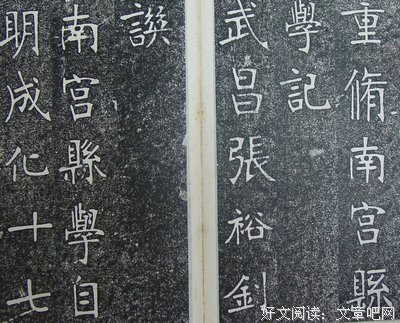 重脩南宫縣
學記
武昌張裕釗
譔
南宫縣學自
明成化十七
好文阅读：文章吧网